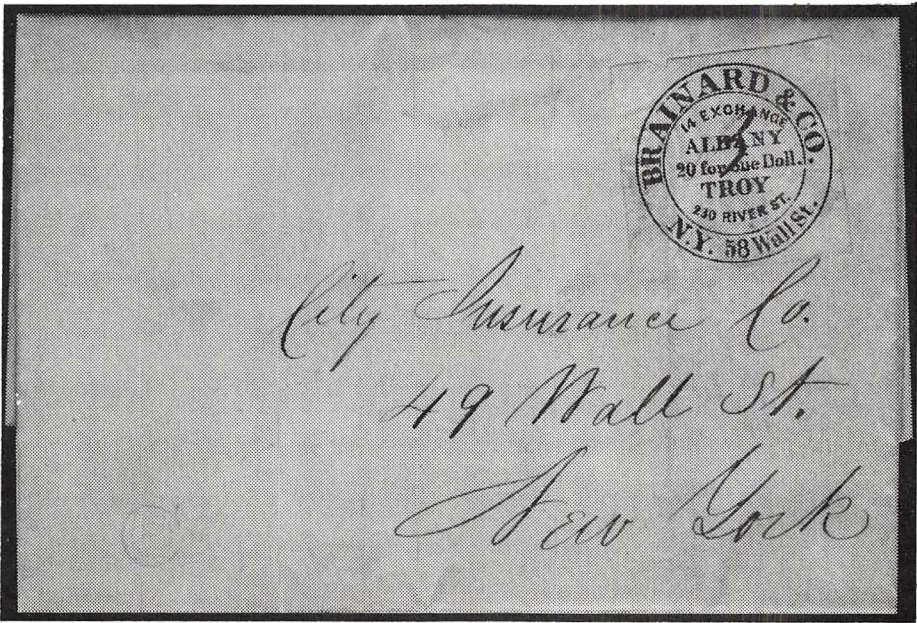 BRAINARD & CO.
14 EXCHANGE
ALBANY
20 for one Doll.
TROY
230 RIVER ST.
N.Y. 58 Wall St.
City Insurance Co.
49 Wall St.
New York